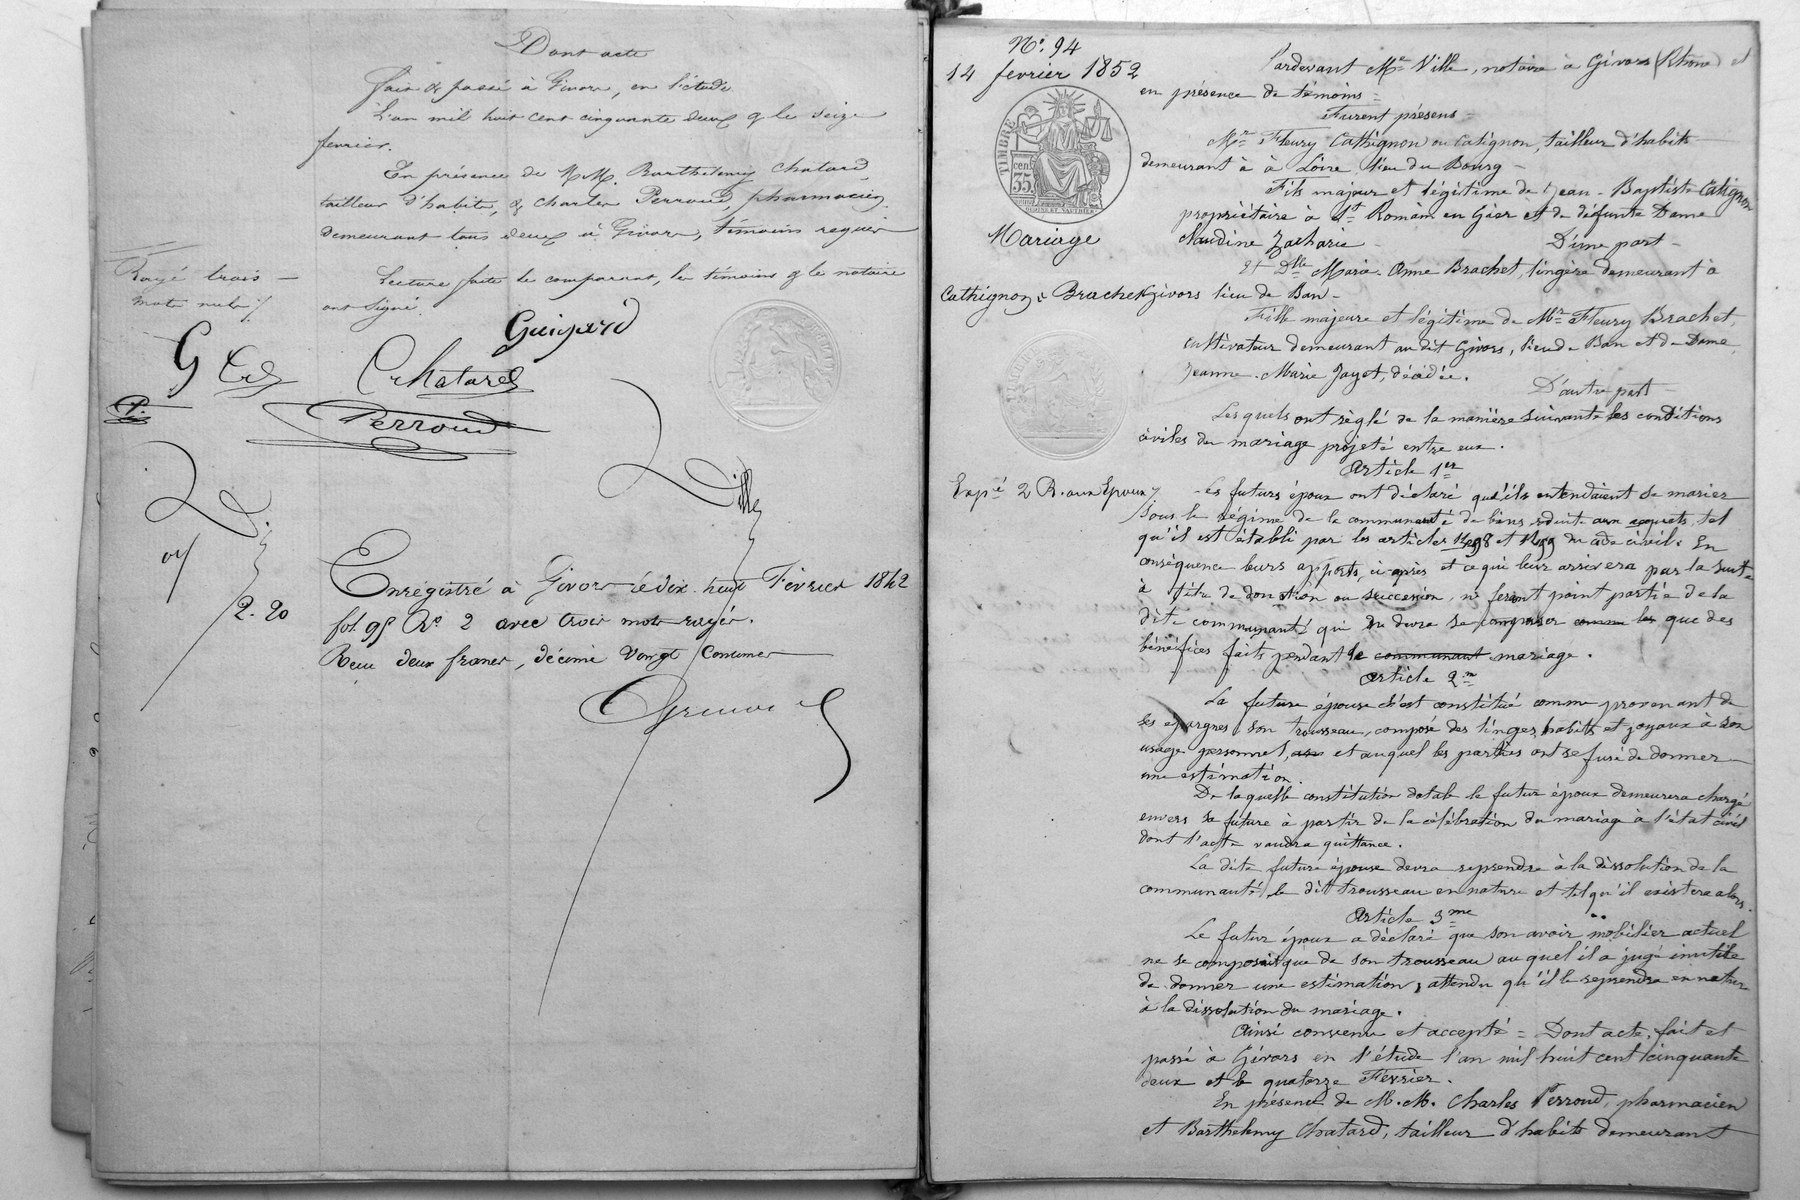 Dont acte
Fait & passé à Givors, en l'étude
L'an mil huit cent cinquante deux & le seize
fevrier.
En présence de M.M. Barthelemy Chatard,
tailleur d'habits, & Charles Perroud, pharmacien
demeurant tous deux à Givors, témoins requis
Rayé trois
mots nuls
Lecture faite le comparant, les témoins & le notaire
ont signé.
Guignard
G
Chatard
Perroud
Ville
2.20
Enregistré à Givors le dix huit Février 1842
fol. 98 Ro. 2 avec trois mots rayés.
Reçu deux francs, décime vingt centimes
No. 94
14 fevrier 1852
TIMBRE
35
Mariage
Cathignon & Brachet
Expé 2 R. aux Epoux
Pardevant Me Ville, notaire à Givors (Rhône) et
en présence de témoins =
Furent présens =
Mr Fleury Cathignon ou Catignon, tailleur d'habits
demeurant à à Loire, lieu du Bourg
Fils majeur et légitime de Jean-Baptiste Catignon
propriétaire à St Romain en Gier et de défunte Dame
Claudine Zacharie - D'une part -
Et Dlle Marie-Anne Brachet, lingère demeurant à
Givors lieu de Ban -
Fille majeure et légitime de Mr Fleury Brachet,
cultivateur demeurant au dit Givors, lieu de Ban et de Dame
Jeanne-Marie Jayet, décédée.
D'autre part
Lesquels ont règlé de la manière suivante les conditions
civiles du mariage projeté entre eux.
Article 1er
Les futurs époux ont déclaré qu'ils entendaient se marier
sous le régime de la communauté de biens réduite aux acquets, tel
qu'il est établi par les articles 1498 et 1499 du code civil. En
conséquence leurs apports, ci-après et ce qui leur arrivera par la suite
à titre de donation ou succession, ne feront point partie de la
dite communauté qui ne devra se composer comme les que des
bénéfices faits pendant le communaut mariage.
Article 2me
La future épouse s'est constitué comme provenant de
ses épargnes, son trousseau, composé des linges, habits et joyaux à son
usage personnel, et auquel les parties ont refusé de donner
une estimation.
De laquelle constitution dotale le futur époux demeurera chargé
envers sa future à partir de la célébration du mariage à l'état civil
dont l'acte vaudra quittance.
La dite future épouse devra reprendre à la dissolution de la
communauté, le dit trousseau en nature et tel qu'il existera alors.
Article 3me
Le futur époux a déclaré que son avoir mobilier actuel
ne se composait que de son trousseau auquel il a jugé inutile
de donner une estimation, attendu qu'il le reprendra en nature
à la dissolution du mariage.
Ainsi convenu et accepté = Dont acte, fait et
passé à Givors en l'étude l'an mil huit cent cinquante
deux et le quatorze Février.
En présence de M.M. Charles Perroud, pharmacien
et Barthelemy Chatard, tailleur d'habits demeurant